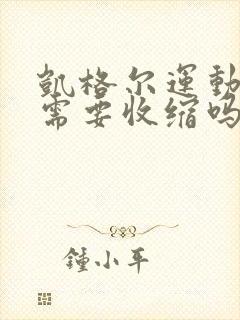 凱格尔運動
需要收缩吗
鍾小平